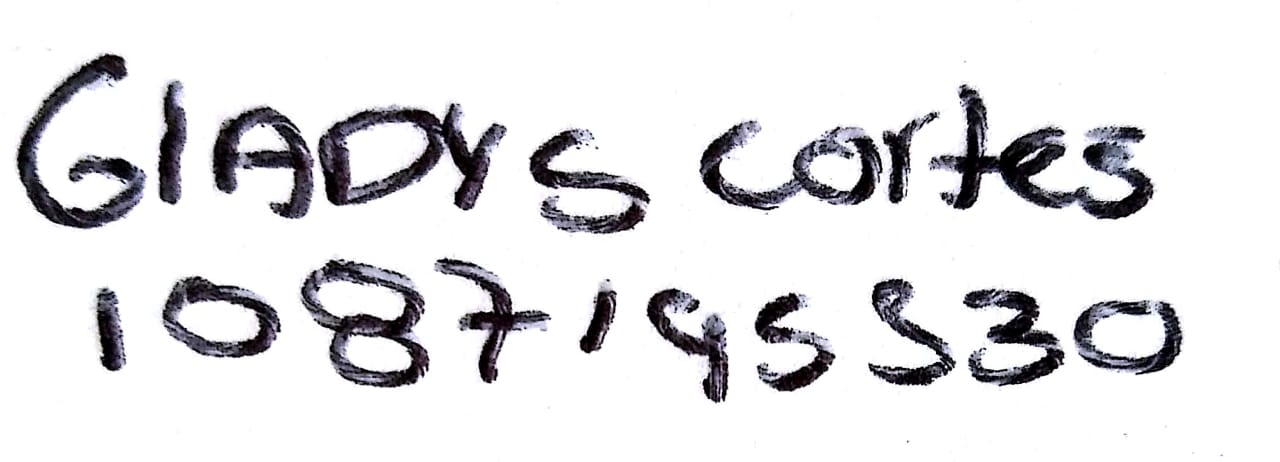 GlADYS cortes
1087195530